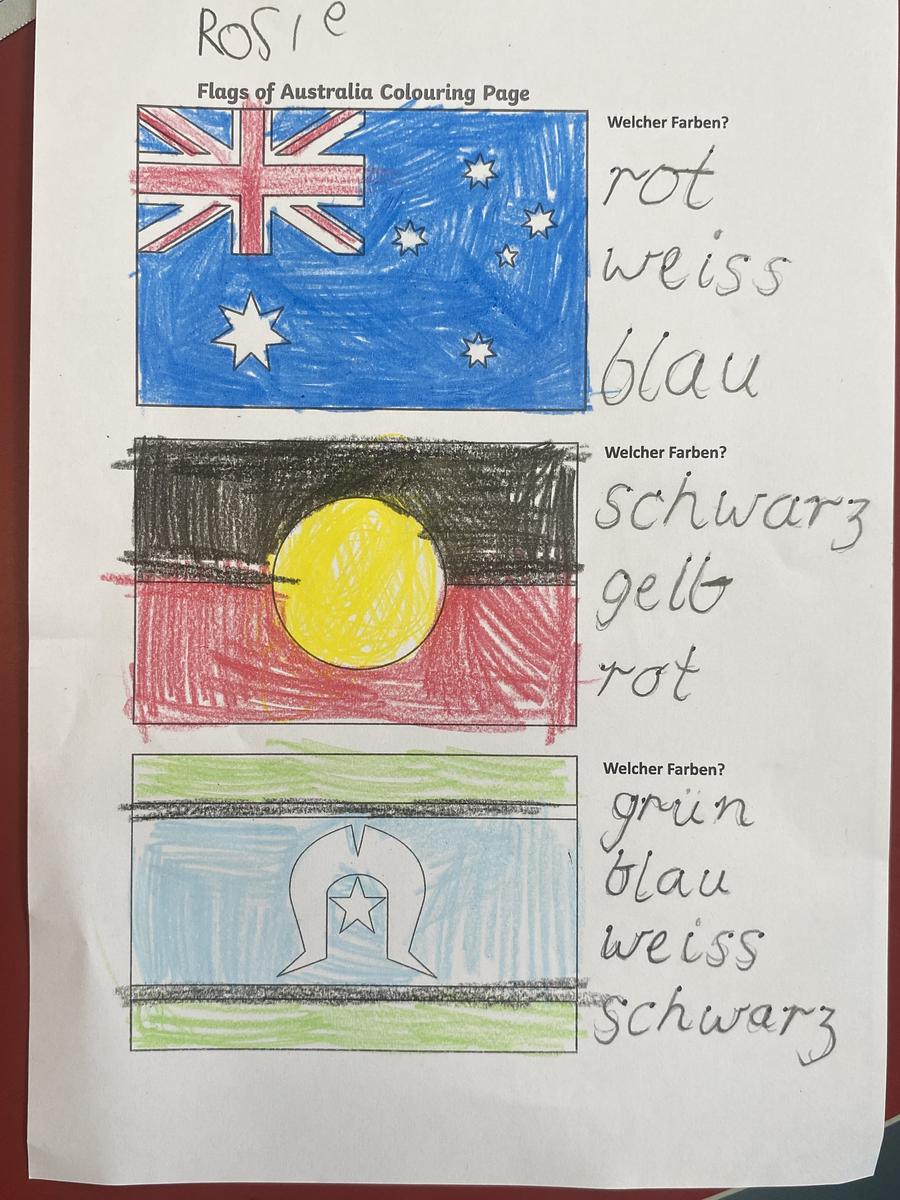 Rosie
Flags of Australia Colouring Page
Welcher Farben?
rot
weiss
blau
Welcher Farben?
schwarz
gelb
rot
Welcher Farben?
grün
blau
weiss
schwarz